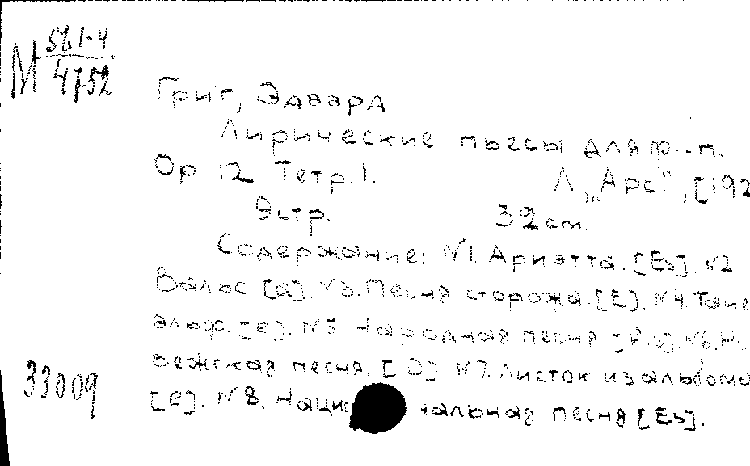 М 561-4
4752
Григ, Эдвард
Лирические пьесы для ф.-п.
Op 12 Тетр. 1. Л. „Арс“, [192
9стр. 32 cm.
Содержание: №1. Ариэтта. [Es]. №2
Вальс [a]. №3. Песня сторожа. [E]. №4. Танец
эльф. [e]. №5 Народная песня
вежская песня. [D] №7. Листок из альбома
33009
[e]. №8. Национальная песня [Es].